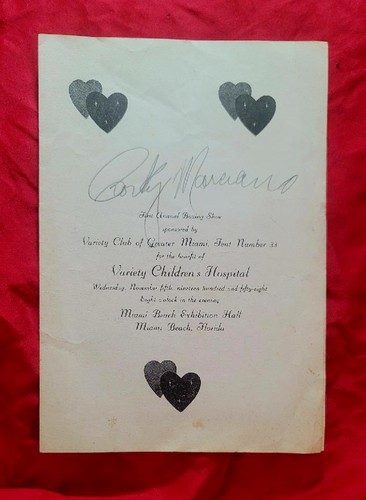 Rocky Marciano
First Annual Boxing Show
sponsored by
Variety Club of Greater Miami, Tent Number 33
for the benefit of
Variety Children's Hospital
Wednesday, November fifth, nineteen hundred and fifty-eight
Eight o'clock in the evening
Miami Beach Exhibition Hall
Miami Beach, Florida